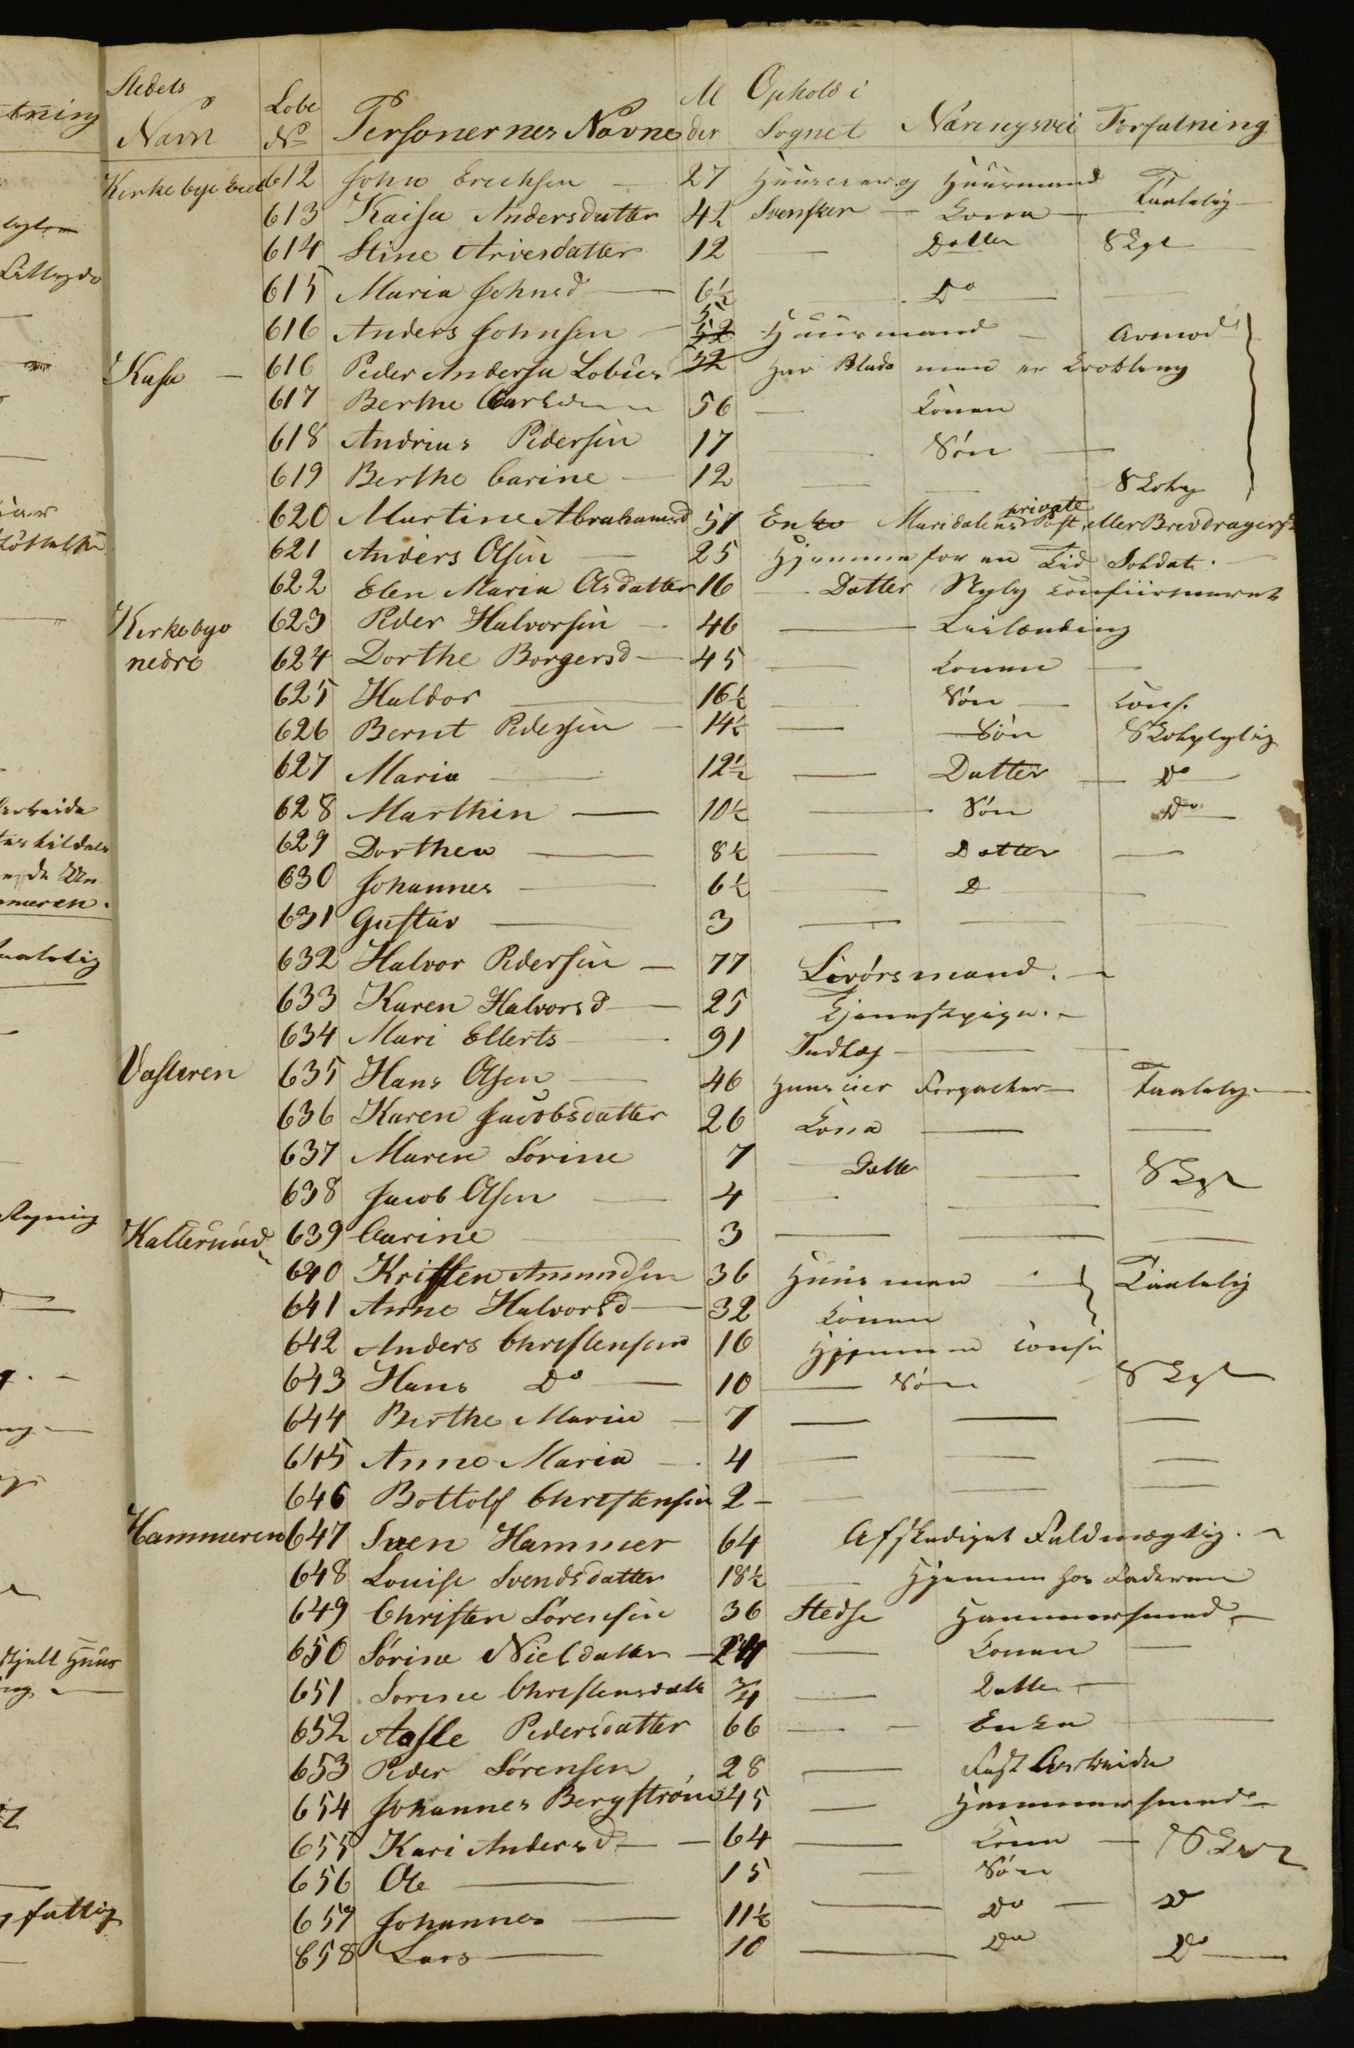 Stedets Navn | Lobe No | Personernes Navne | Al der | Ophold i Sognet | Næringsvei | Forfatning
Kirkebye | 612 | John Erichsen — | 27 | Huuseier og | Huusmand | Taalelig —
613 | Kaisa Andersdatter | 42 | Svensker — | Kona —
614 | Stine Arvesdatter | 12 | — | Datter | Skgt —
615 | Maria Johnsd — | 6½ | Do —
616 | Anders Johnsen — | 52 | Huusmand — | Armod
Kasa — | 616 | Peder Andersen | 52 | har Plads men er Krobling
617 | Berthe | 56 | — | Konen
618 | Andrius Pedersen | 17 | — | Søn —
619 | Berthe Carine — | 12 | — | Skoleg
620 | Martine Abrahamsd | 57 | Enke | Maridalens private Post eller Brevdragerske
621 | Anders Olsen — | 25 | Hjemme for en Tid Soldat. —
622 | Elen Maria Olsdatter | 16 | — Datter Nylig Confiirmeret
Kirkebye nedre | 623 | Peder Halvorsen — | 46 | — | Leilending
624 | Dorthe Borgersd — | 45 | — | Konen —
625 | Haldor — | 16½ | — | Søn — | Conf.
626 | Bernt Pedersen — | 14½ | — | Søn | Skolepligtig
627 | Maria — | 12½ | — | Datter — | Do —
628 | Marthin — | 10½ | — | Søn | Do —
629 | Dorthea — | 8½ | — | Datter | —
630 | Johannes — | 6½ | — | D | —
631 | Gustav — | 3 | — | — | —
632 | Halvor Pedersen — | 77 | Livörsmand. —
633 | Karen Halvorsd — | 25 | Tjenestepige. —
634 | Mari Ellerts — | 91 | Indlæg — | —
Vasteren | 635 | Hans Olsen — | 46 | Huuseier Forpakter — | Taalelig —
636 | Karen Jacobsdatter | 26 | Kona — | —
637 | Maren Sörine | 7 | — Datter — | Skgt
638 | Jacob Olsen — | 4 | — | — | —
Kallerund | 639 | Carine — | 3 | — | — | —
640 | Kristen Amundsen | 36 | Huusman — | Taalelig
641 | Anne Halvorsd — | 32 | Konen
642 | Anders Christensen | 16 | Hjemme Conf
643 | Hans Do — | 10 | — Søn | Skgt
644 | Berthe Maria — | 7 | — | — | —
645 | Anne Maria — | 4 | — | — | —
646 | Bottolf Christensen | 2 — | — | — | —
Hammeren | 647 | Sven Hammer | 64 | Afskediget Fuldmægtig. —
648 | Louise Svendsdatter | 18½ | — Hjemme hos Faderen
649 | Christen Sörensen | 36 | Stedse | Hammersmed —
650 | Sörine Nieldatter — | 24 | — | Konen —
651 | Sorine Christensdatt | ¾ | — | Datter —
652 | Aasle Pedersdatter | 66 | — | Enke —
653 | Peder Sörensen | 28 | — | Fast Arbeide
654 | Johannes Bergström | 45 | — | Hammersmed —
655 | Kari Andersd — | 64 | — | Kona —
656 | Ole — | 15 | — | Søn
657 | Johannes — | 11½ | — | Do — | Do
658 | Lars — | 10 | — | Do | Do —